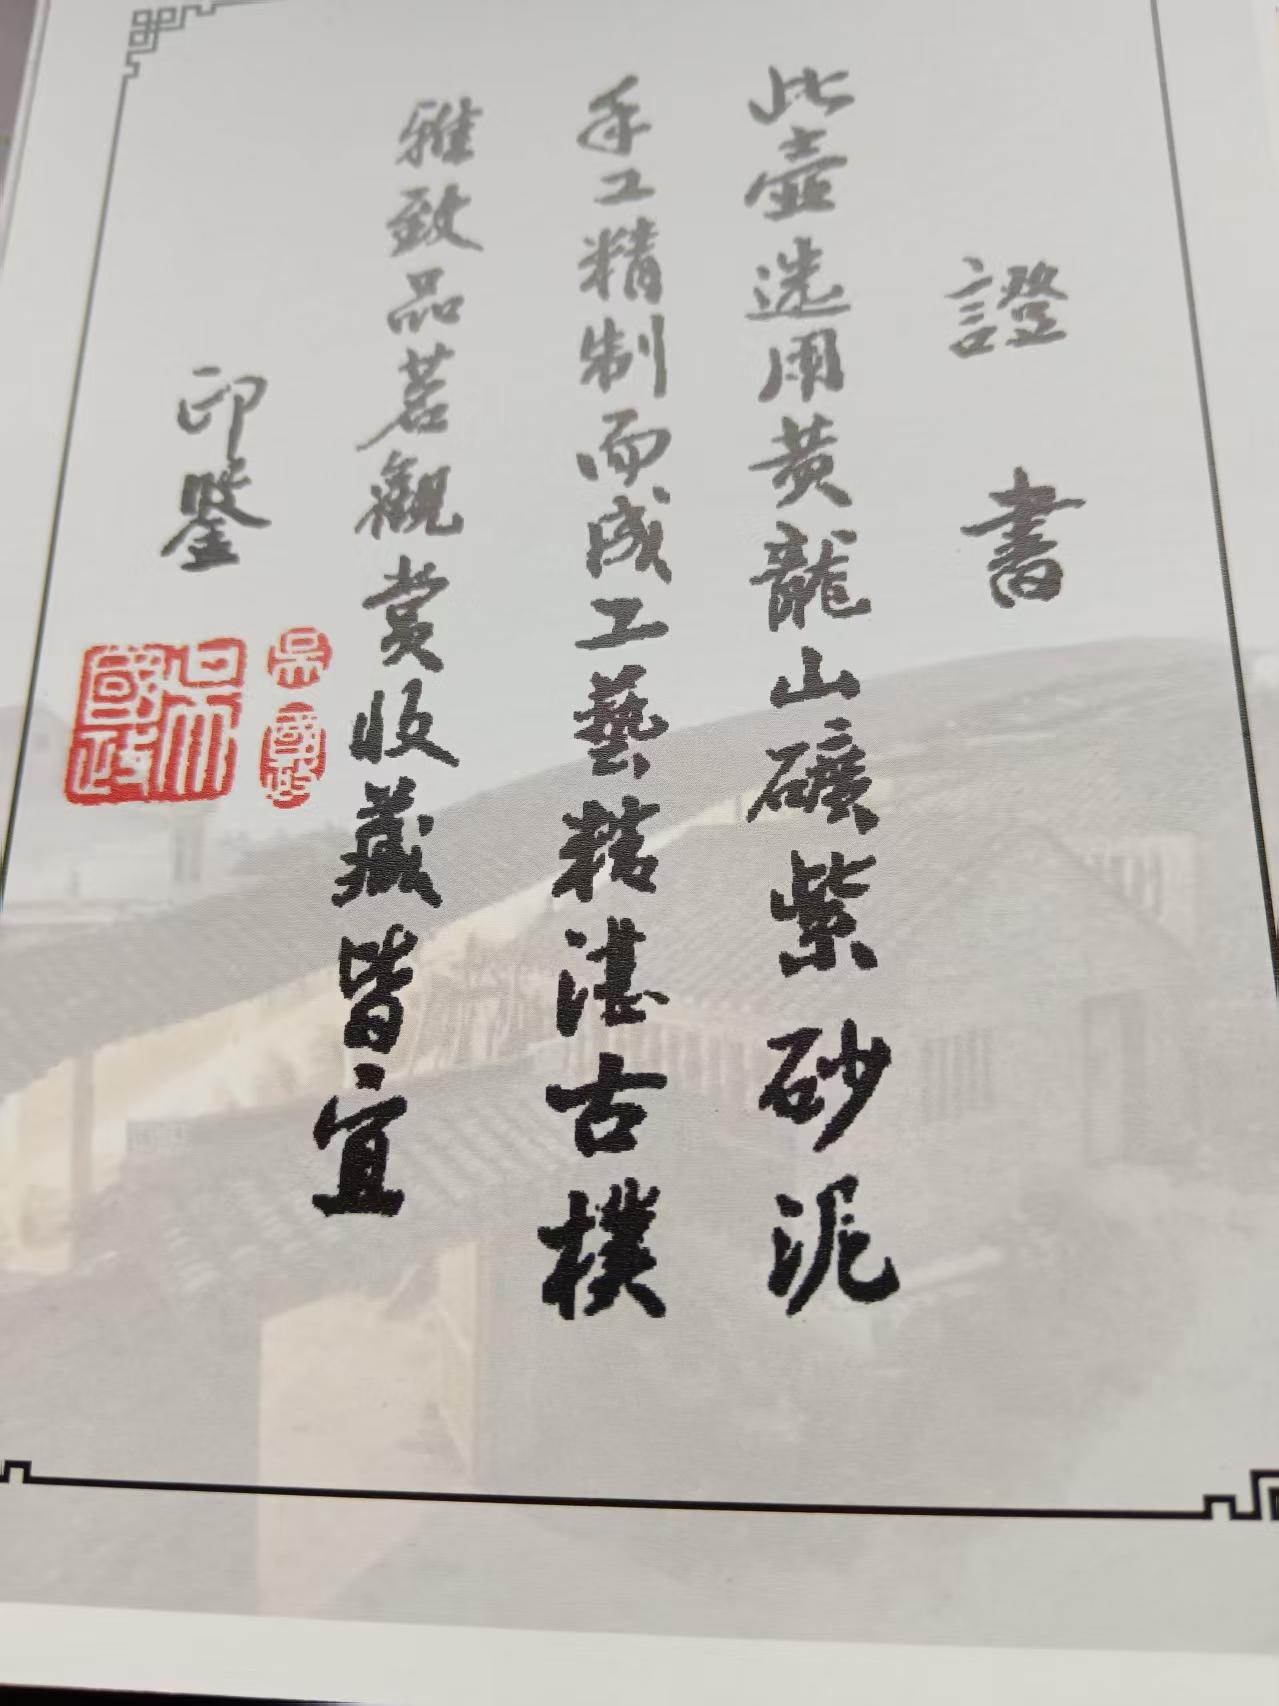 證書
此壺选用黄龍山礦紫砂泥
手工精制而成工藝精湛古樸
雅致品茗觀赏收藏皆宜
印鑒
吴
國政
吴國政